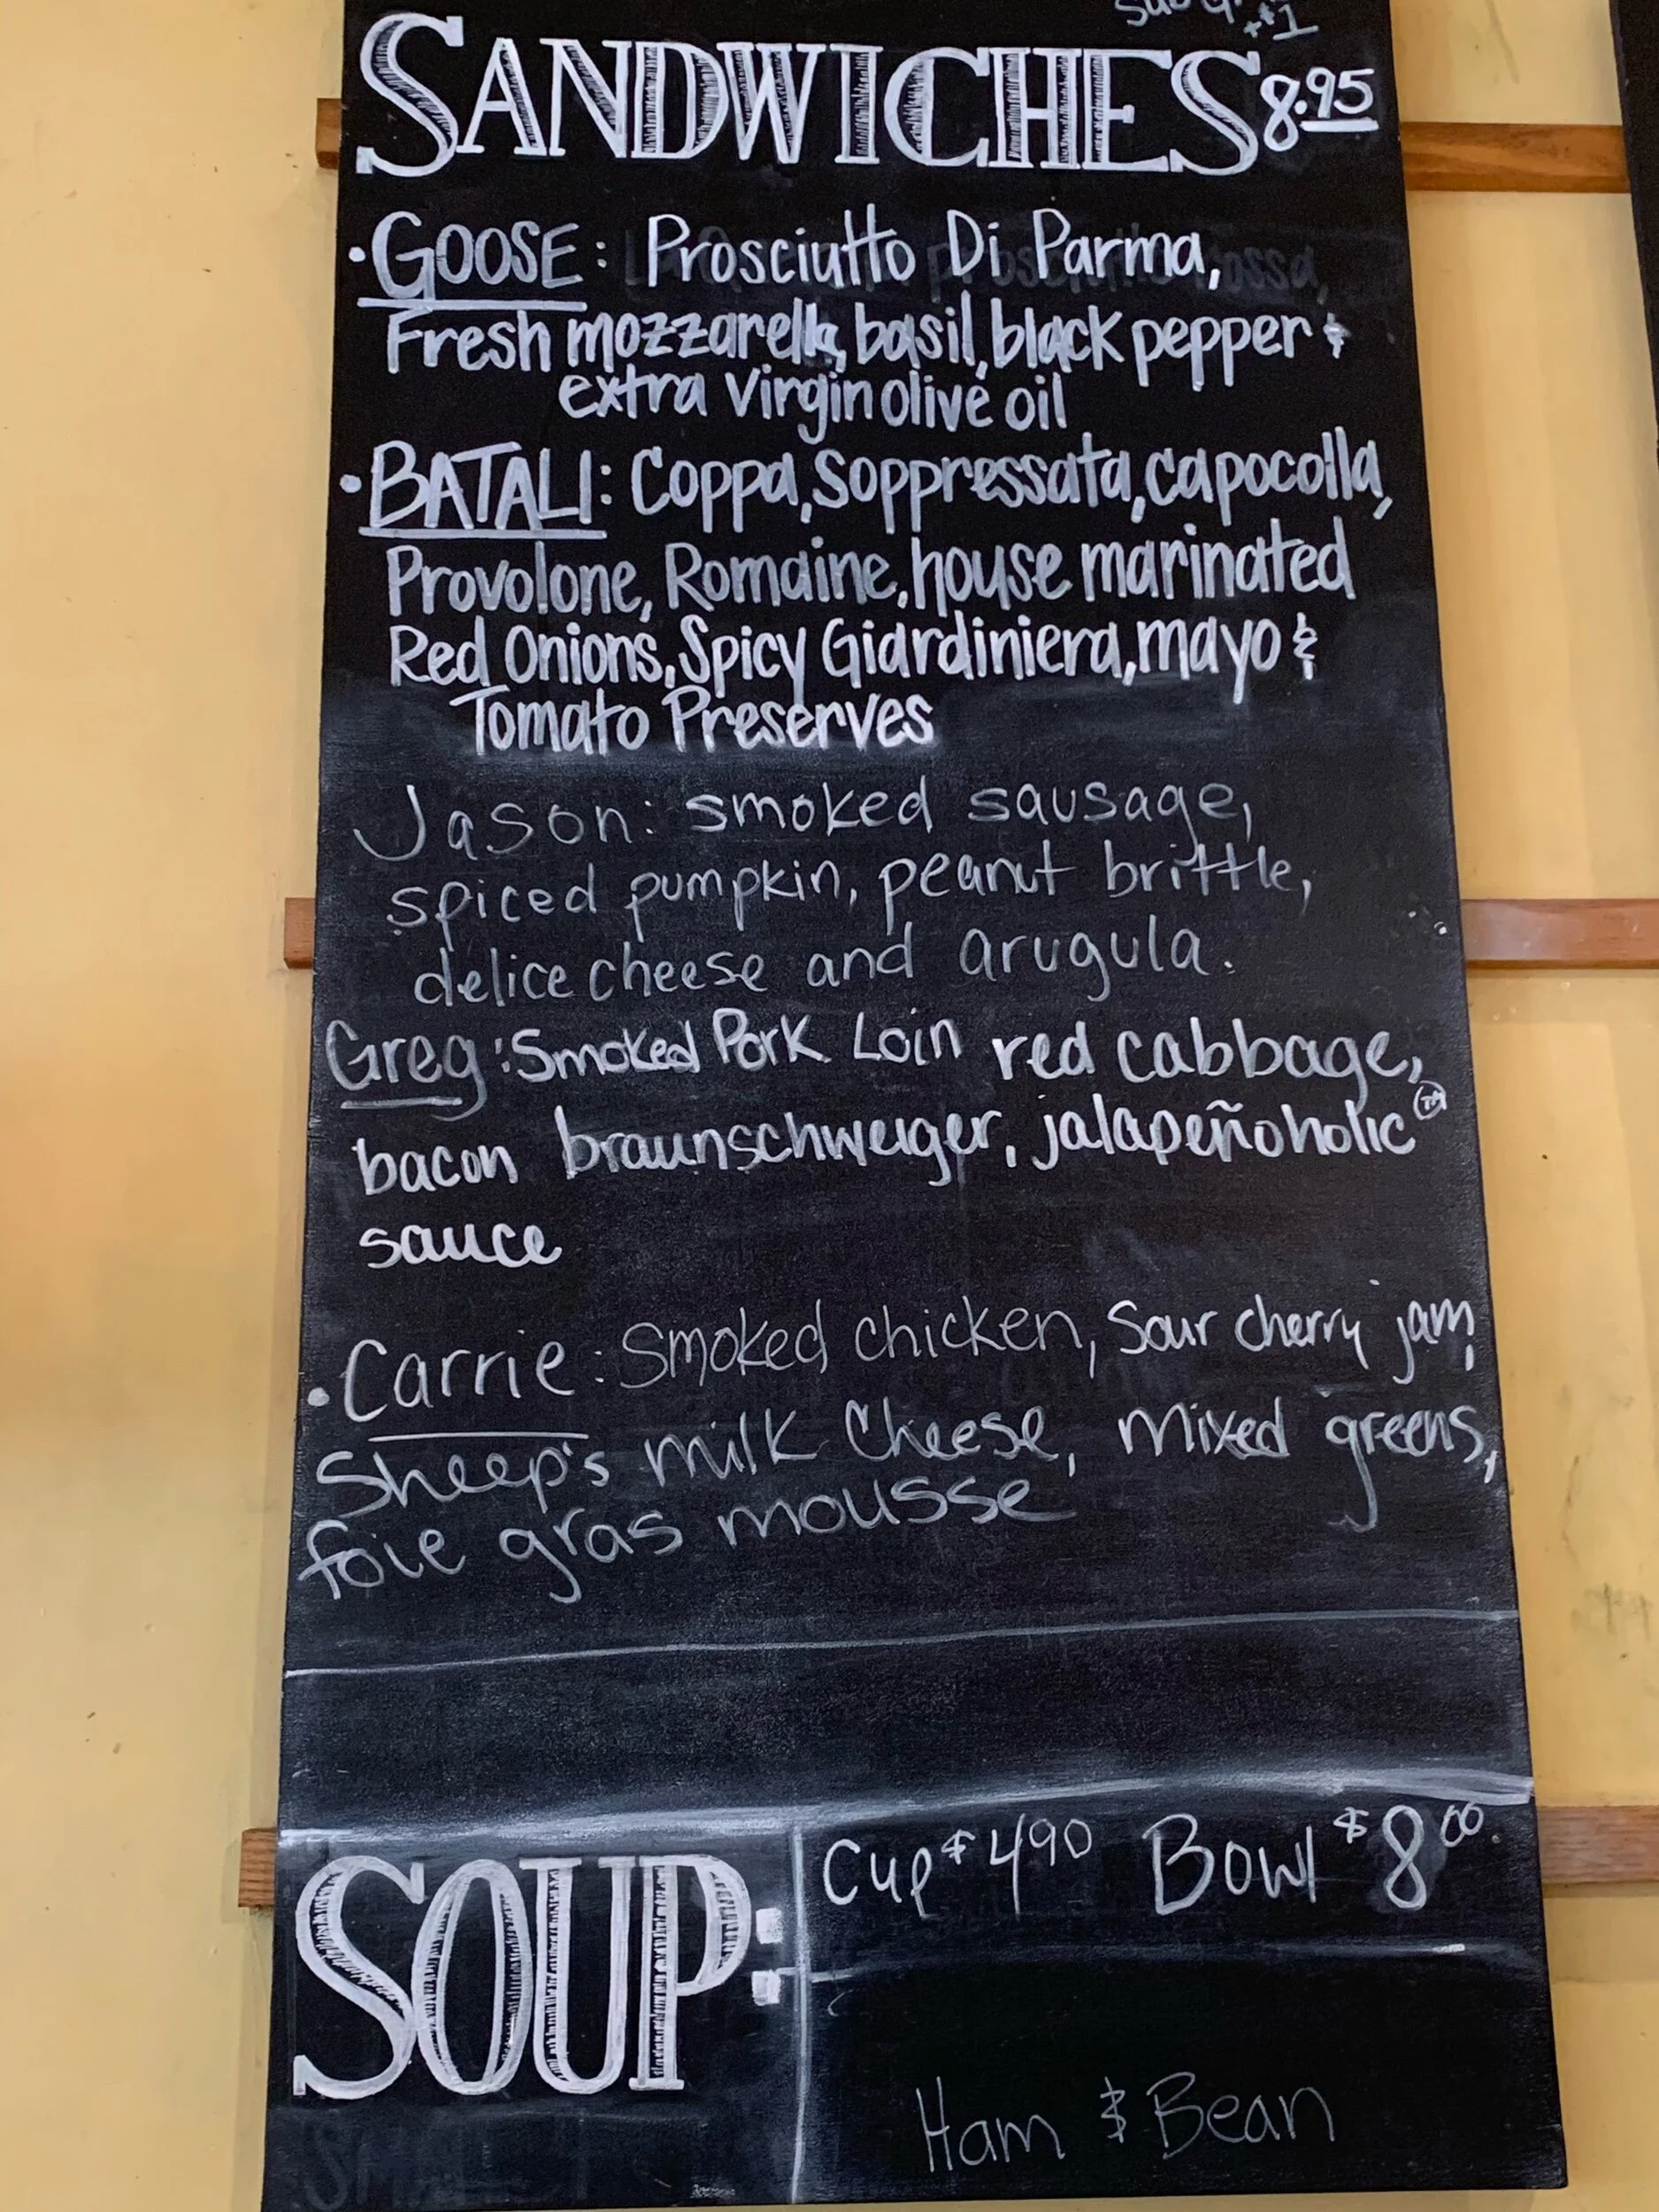 +$1
SANDWICHES 8.95
• GOOSE: Prosciutto Di Parma,
Fresh mozzarella, basil, black pepper &
extra Virgin olive oil
• BATALI: Coppa, Soppressata, capocolla,
Provolone, Romaine, house marinated
Red Onions, Spicy Giardiniera, mayo &
Tomato Preserves
Jason: smoked sausage,
spiced pumpkin, peanut brittle,
delice cheese and arugula.
Greg: Smoked Pork Loin red cabbage,
bacon braunschweiger, jalapeñoholic TM
sauce
• Carrie: Smoked chicken, Sour cherry jam,
Sheep's milk Cheese, mixed greens,
foie gras mousse
SOUP: Cup $4.90 Bowl $8.00
Ham & Bean